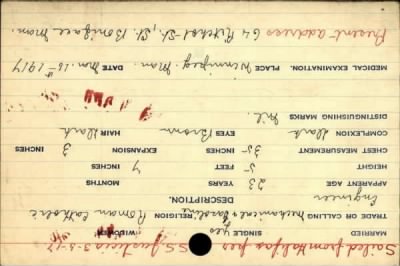 Sailed from Halifax per
S.S. Justicia 3-5-17
MARRIED SINGLE yes WIDOWER
TRADE OR CALLING Mechanical & Gasoline RELIGION Roman Catholic
Engineer
DESCRIPTION.
APPARENT AGE 23 YEARS MONTHS
HEIGHT 5 FEET 7 INCHES
CHEST MEASUREMENT 35 INCHES EXPANSION 3 INCHES
COMPLEXION Dark EYES Brown HAIR Dark
DISTINGUISHING MARKS Nil.
MEDICAL EXAMINATION. PLACE Winnipeg. Man. DATE Mar. 16th 1917
Present address 64 Ritchot St., St. Boniface Man.